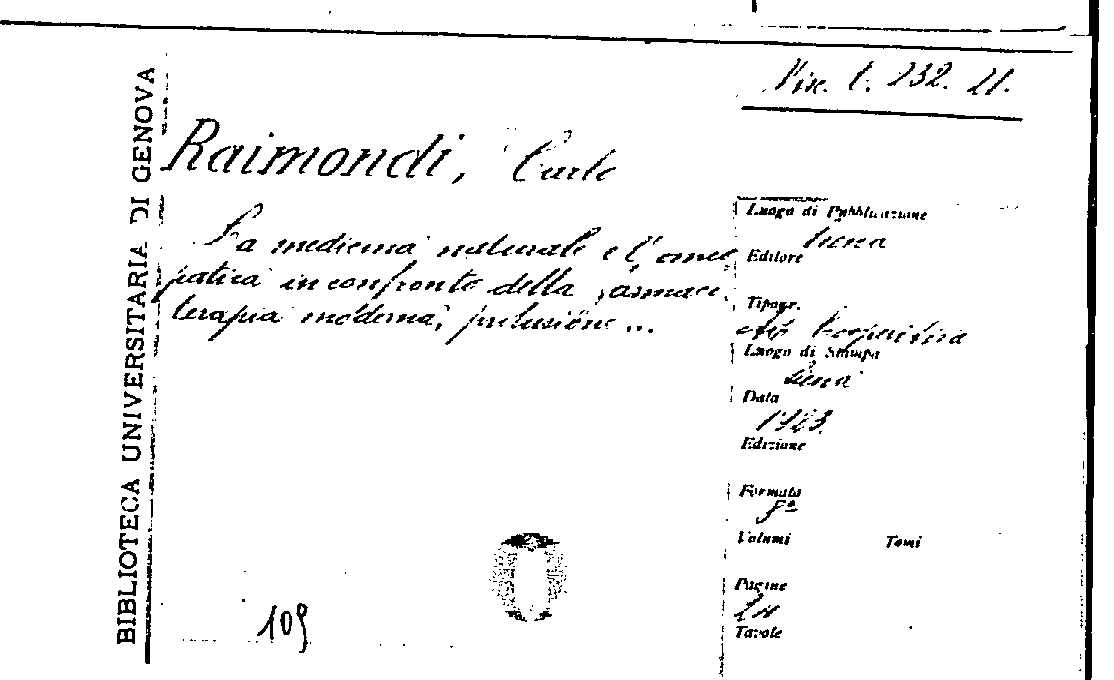 BIBLIOTECA UNIVERSITARIA DI GENOVA
Misc. C. 232. 21.
Raimondi, Carlo
La medicina naturale e l'omeo
patica in confronto della farmaco
terapia moderna, prelusione ...
Luogo di Pubblicazione
Siena
Editore
Tipogr.
Cooperativa
Luogo di Stampa
Siena
Data
Edizione
Formato
8º
Volumi Tomi
Pagine
Tavole
109